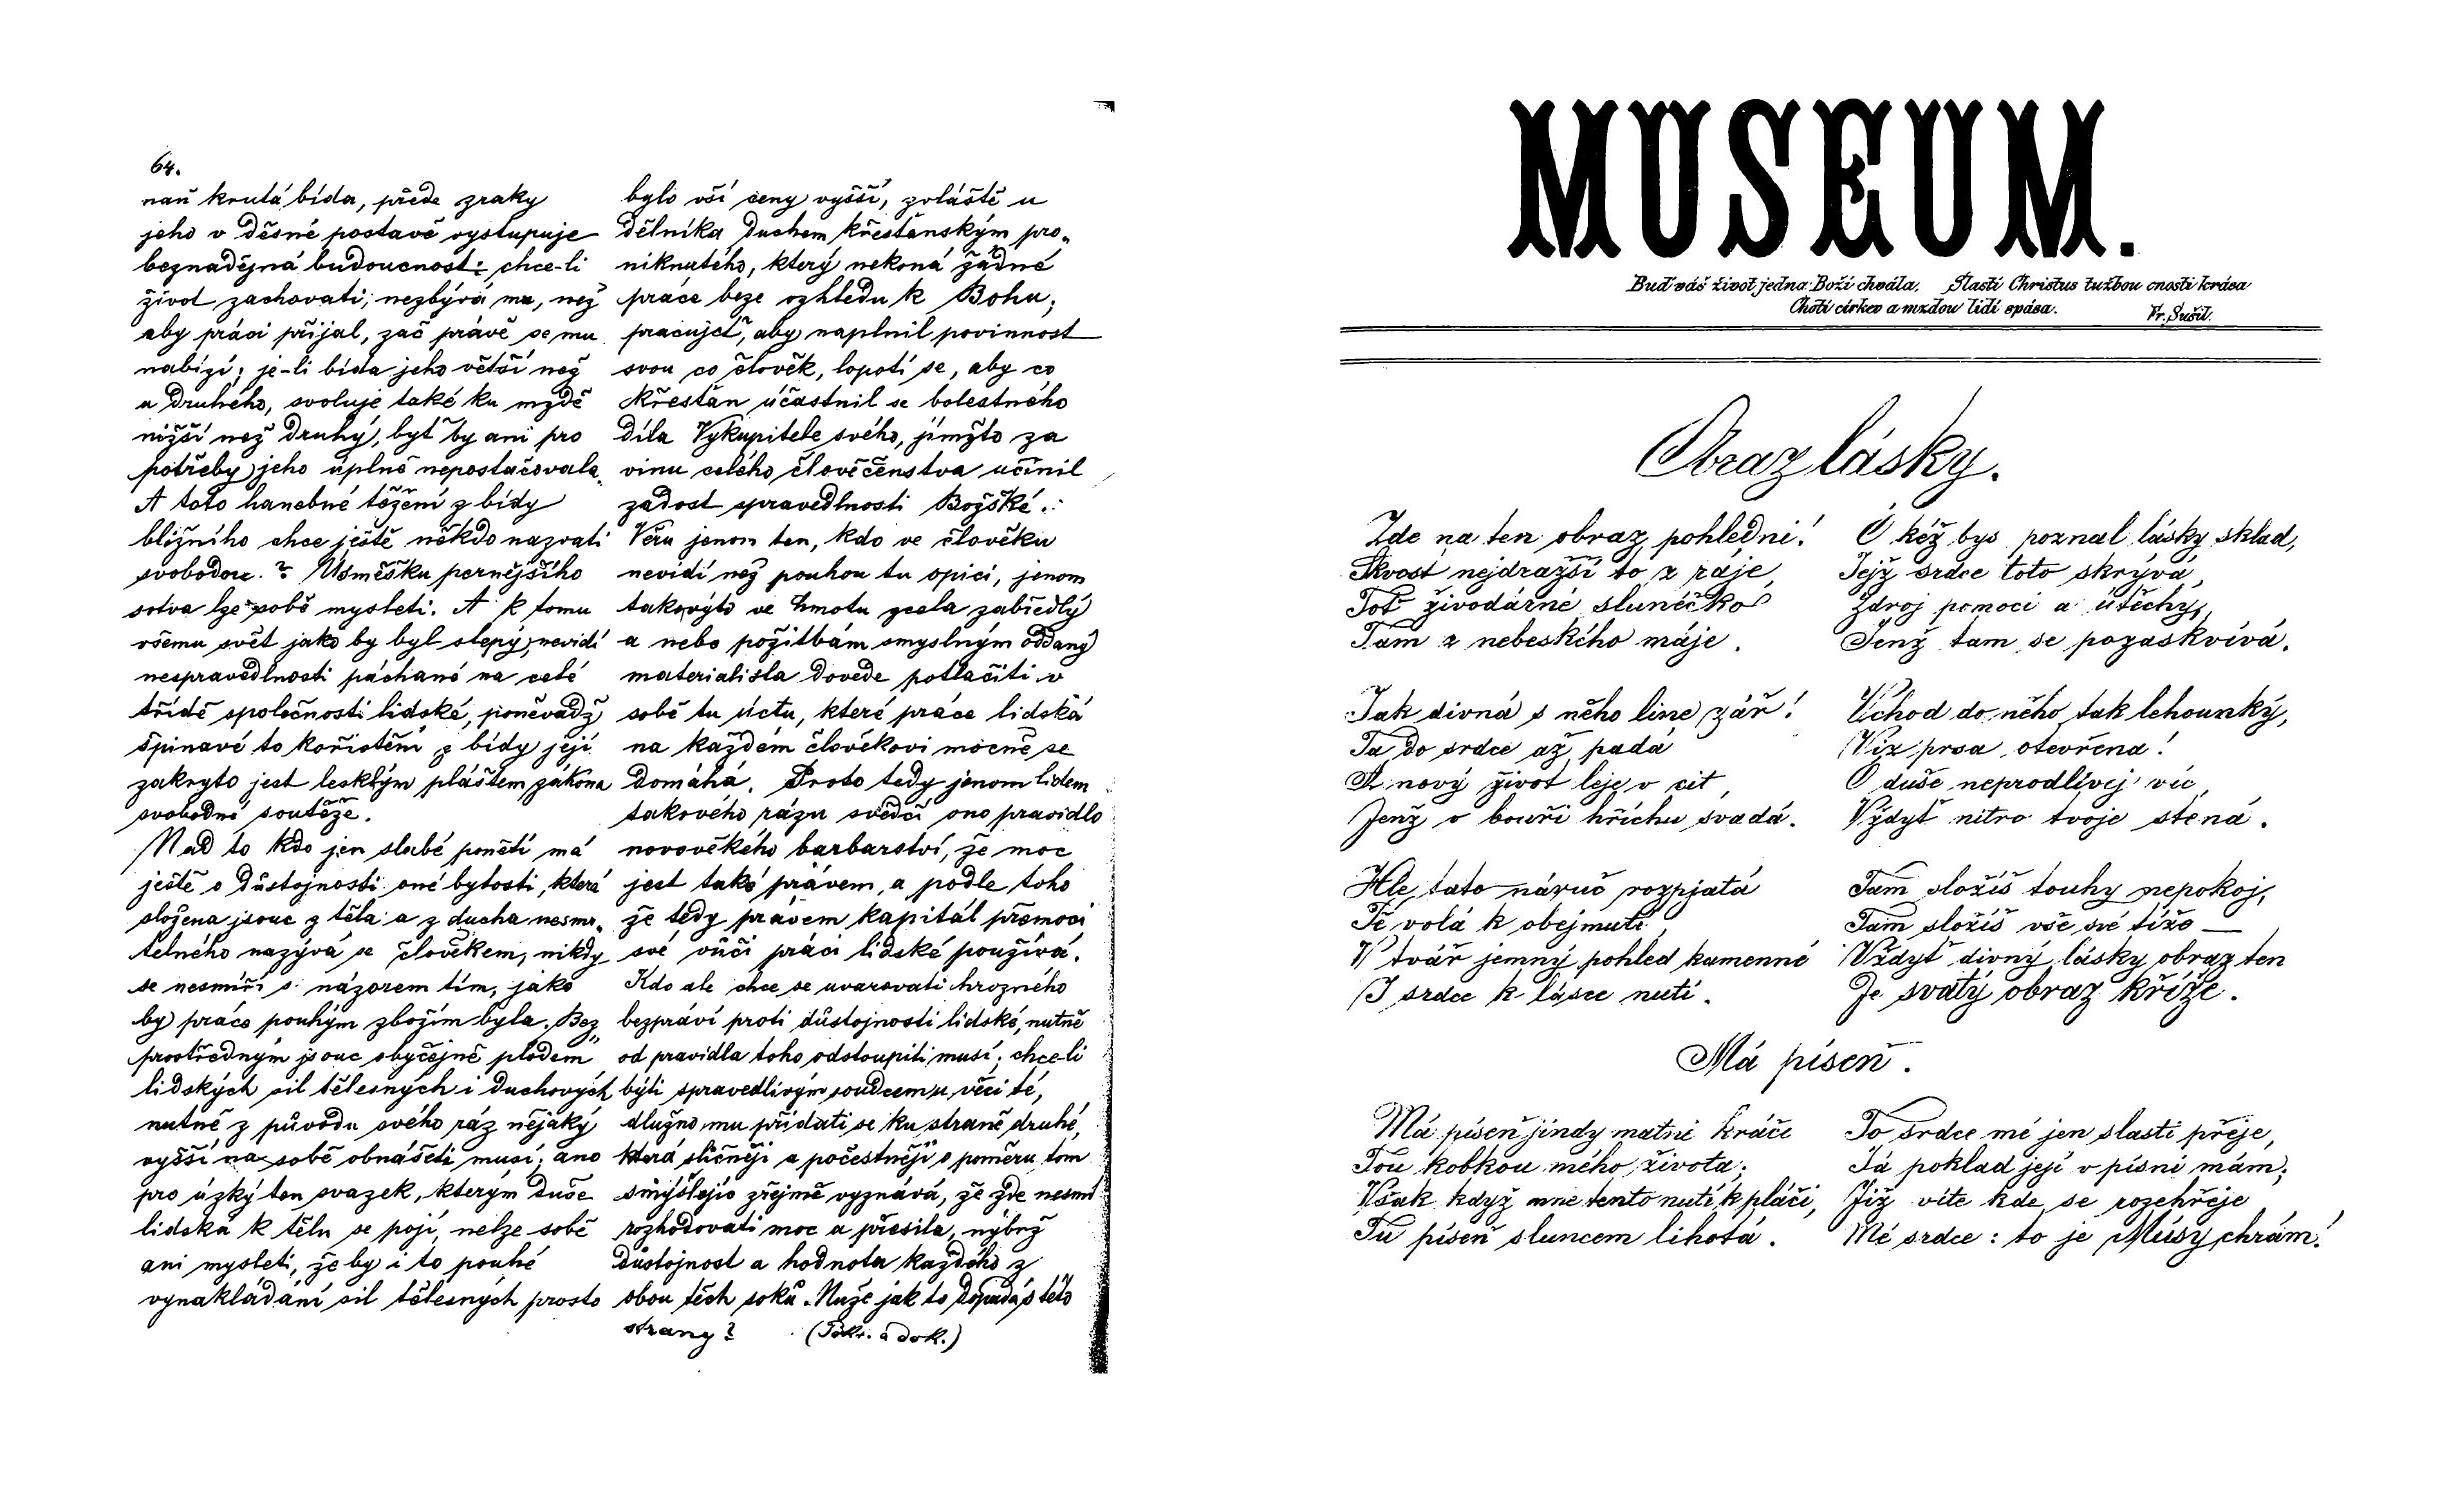 64.
naň krutá bída, přede zraky
jeho v děsné postavě vystupuje
beznadějná budoucnost: chce-li
život zachovati, nezbývá mu, než
aby práci přijal, zač právě se mu
nabízí; je-li bída jeho větší než
u druhého, svoluje také ku mzdě
nižší než druhý, byť by ani pro
potřeby jeho úplně nepostačovala.
A toto hanebné těžení z bídy
bližního chce ještě někdo nazvati
svobodou? Úsměšku pernějšího
sotva lze sobě mysleti. A k tomu
všemu svět jako by byl slepý, nevidí
nespravedlnosti páchané na celé
třídě společnosti lidské, poněvadž
špinavé to kořistění z bídy její
zakryto jest lesklým pláštem zákona
svobodné soutěže.
Nad to kdo jen slabé ponětí má
ještě o důstojnosti oné bytosti, která
složena jsouc z těla a z ducha nesmr„
telného nazývá se člověkem, nikdy
se nesmíří s názorem tím, jako
by práce pouhým zbožím byla. Bez„
prostředným jsouc obyčejně plodem
lidských sil tělesných i duchových
nutně z původu svého ráz nějaký
vyšší na sobě obnášeti musí; ano
pro úzký ten svazek, kterým duše
lidská k tělu se pojí, nelze sobě
ani mysleti, že by i to pouhé
vynakládání sil tělesných prosto
bylo vší ceny vyšší, zvláště u
dělníka duchem křesťanským pro„
niknutého, který nekoná žádné
práce beze vzhledu k Bohu;
pracujeť, aby naplnil povinnost
svou co člověk, lopotí se, aby co
křesťan účastnil se bolestného
díla Vykupitele svého, jímžto za
vinu celého člověčenstva učinil
zadost spravedlnosti Božské.
Věru jenom ten, kdo ve člověku
nevidí než pouhou tu opici, jenom
takovýto ve hmotu zcela zabředlý
a nebo požitbám smyslným oddaný
materialista dovede potlačiti v
sobě tu úctu, které práce lidská
na každém člověkovi mocně se
domáhá. Proto tedy jenom lidem
takového rázu svědčí ono pravidlo
novověkého barbarství, že moc
jest také právem, a podle toho
že tedy právem kapitál přemoci
své vůči práci lidské používá.
Kdo ale chce se uvarovati hrozného
bezpráví proti důstojnosti lidské, nutně
od pravidla toho odstoupiti musí; chce-li
býti spravedlivým soudcem u věci té,
dlužno mu přidati se ku straně druhé,
která sličněji a počestněji o poměru tom
smýšlejíc zřejmě vyznává, že zde nesmí
rozhodovati moc a přesila, nýbrž
důstojnost a hodnota každého z
obou těch soků. Nuže jak to dopadá s této
strany? (Pokr. a dok.)
MUSEUM.
Buď váš život jedna Boží chvála. Slastí Christus tužbou cnosti krása
Chotí církev a mzdou lidí spása.
Fr. Sušil.
Obraz lásky.
Zde na ten obraz pohledni!
Skvost nejdražší to z ráje,
Toť živodárné slunéčko
Tam z nebeského máje.
Jak divná s něho line zář!
Ta do srdce až padá
A nový život leje v cit,
Jenž v bouři hříchu svadá.
Hle, tato náruč rozpjatá
Tě volá k obejmutí,
V tvář jemný pohled kamenné
I srdce k lásce nutí.
Ó kéž bys poznal lásky sklad,
Jejž srdce toto skrývá,
Zdroj pomoci a útěchy,
Jenž tam se pozaskvívá.
Vchod do něho tak lehounký,
Viz prsa otevřena!
O duše neprodlívej víc,
Vždyť nitro tvoje stená.
Tam složíš touhy nepokoj,
Tam složíš vše své tíže —
Vždyť divný lásky obraz ten
Je svatý obraz kříže.
Má píseň.
Má píseň jindy matně kráčí
Tou kobkou mého života;
Však když mne tento nutí k pláči,
Tu píseň sluncem lihotá.
To srdce mé jen slasti přeje,
Já poklad její v písni mám;
Již víte kde se rozehřeje
Mé srdce: to je Músy chrám!